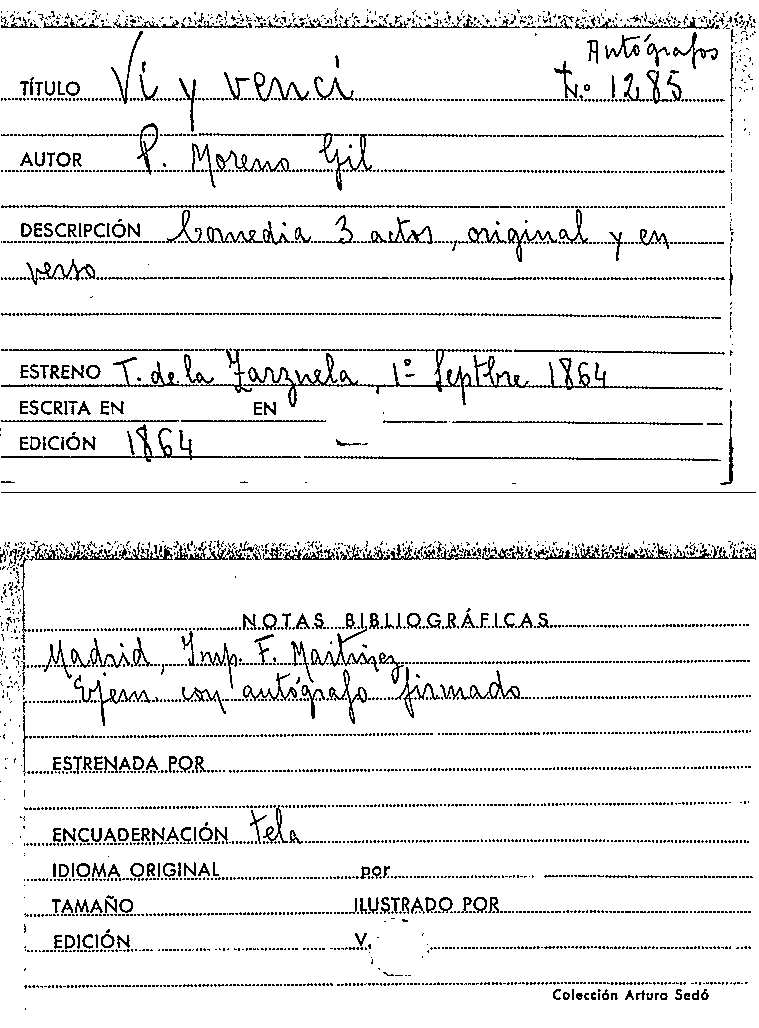 Autógrafos
TÍTULO Vi y vencí N.º 1285
AUTOR P. Moreno Gil
DESCRIPCIÓN Comedia 3 actos, original y en
verso
ESTRENO T. de la Zarzuela, 1º Septbre 1864
ESCRITA EN EN
EDICIÓN 1864 —
NOTAS BIBLIOGRÁFICAS
Madrid, Imp. F. Martínez
Ejem. con autógrafo firmado
ESTRENADA POR
ENCUADERNACIÓN tela
IDIOMA ORIGINAL por
TAMAÑO ILUSTRADO POR
EDICIÓN V.
Colección Arturo Sedó